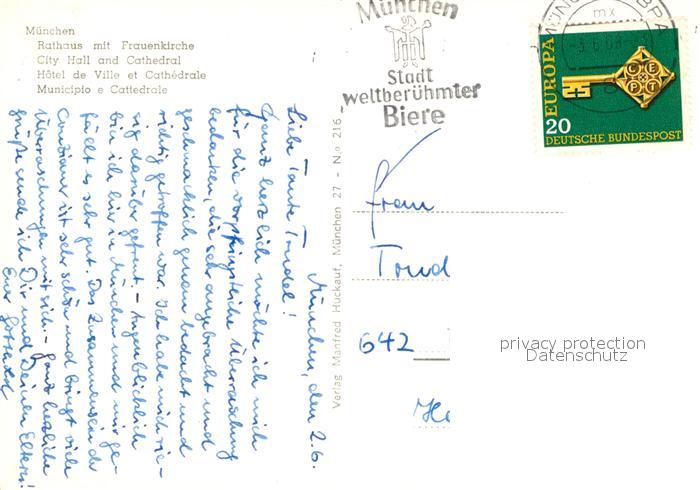 München
Rathaus mit Frauenkirche
City Hall and Cathedral
Hôtel de Ville et Cathédrale
Municipio e Cattedrale
München
Stadt
weltberühmter
Biere
EUROPA
CEPT
20
DEUTSCHE BUNDESPOST
München, den 2.6.
Liebe Tante Trudel!
Ganz herzlich möchte ich mich
für die vorpfingstliche Überraschung
bedanken, die sehr angebracht und
geschmacklich genau bedacht und
richtig getroffen war. Ich habe mich rie-
sig darüber gefreut. - Augenblicklich
bin ich hier in München und mir ge-
fällt es sehr gut. Das Zusammensein der
ist sehr schön und bringt viele
Überraschungen mit sich. - Ganz herzliche
Grüße sende ich Dir und Deinen Eltern!
Euer
Verlag Manfred Huckauf, München 27 - N.o 216
Frau
Trud
642
privacy protection
Datenschutz